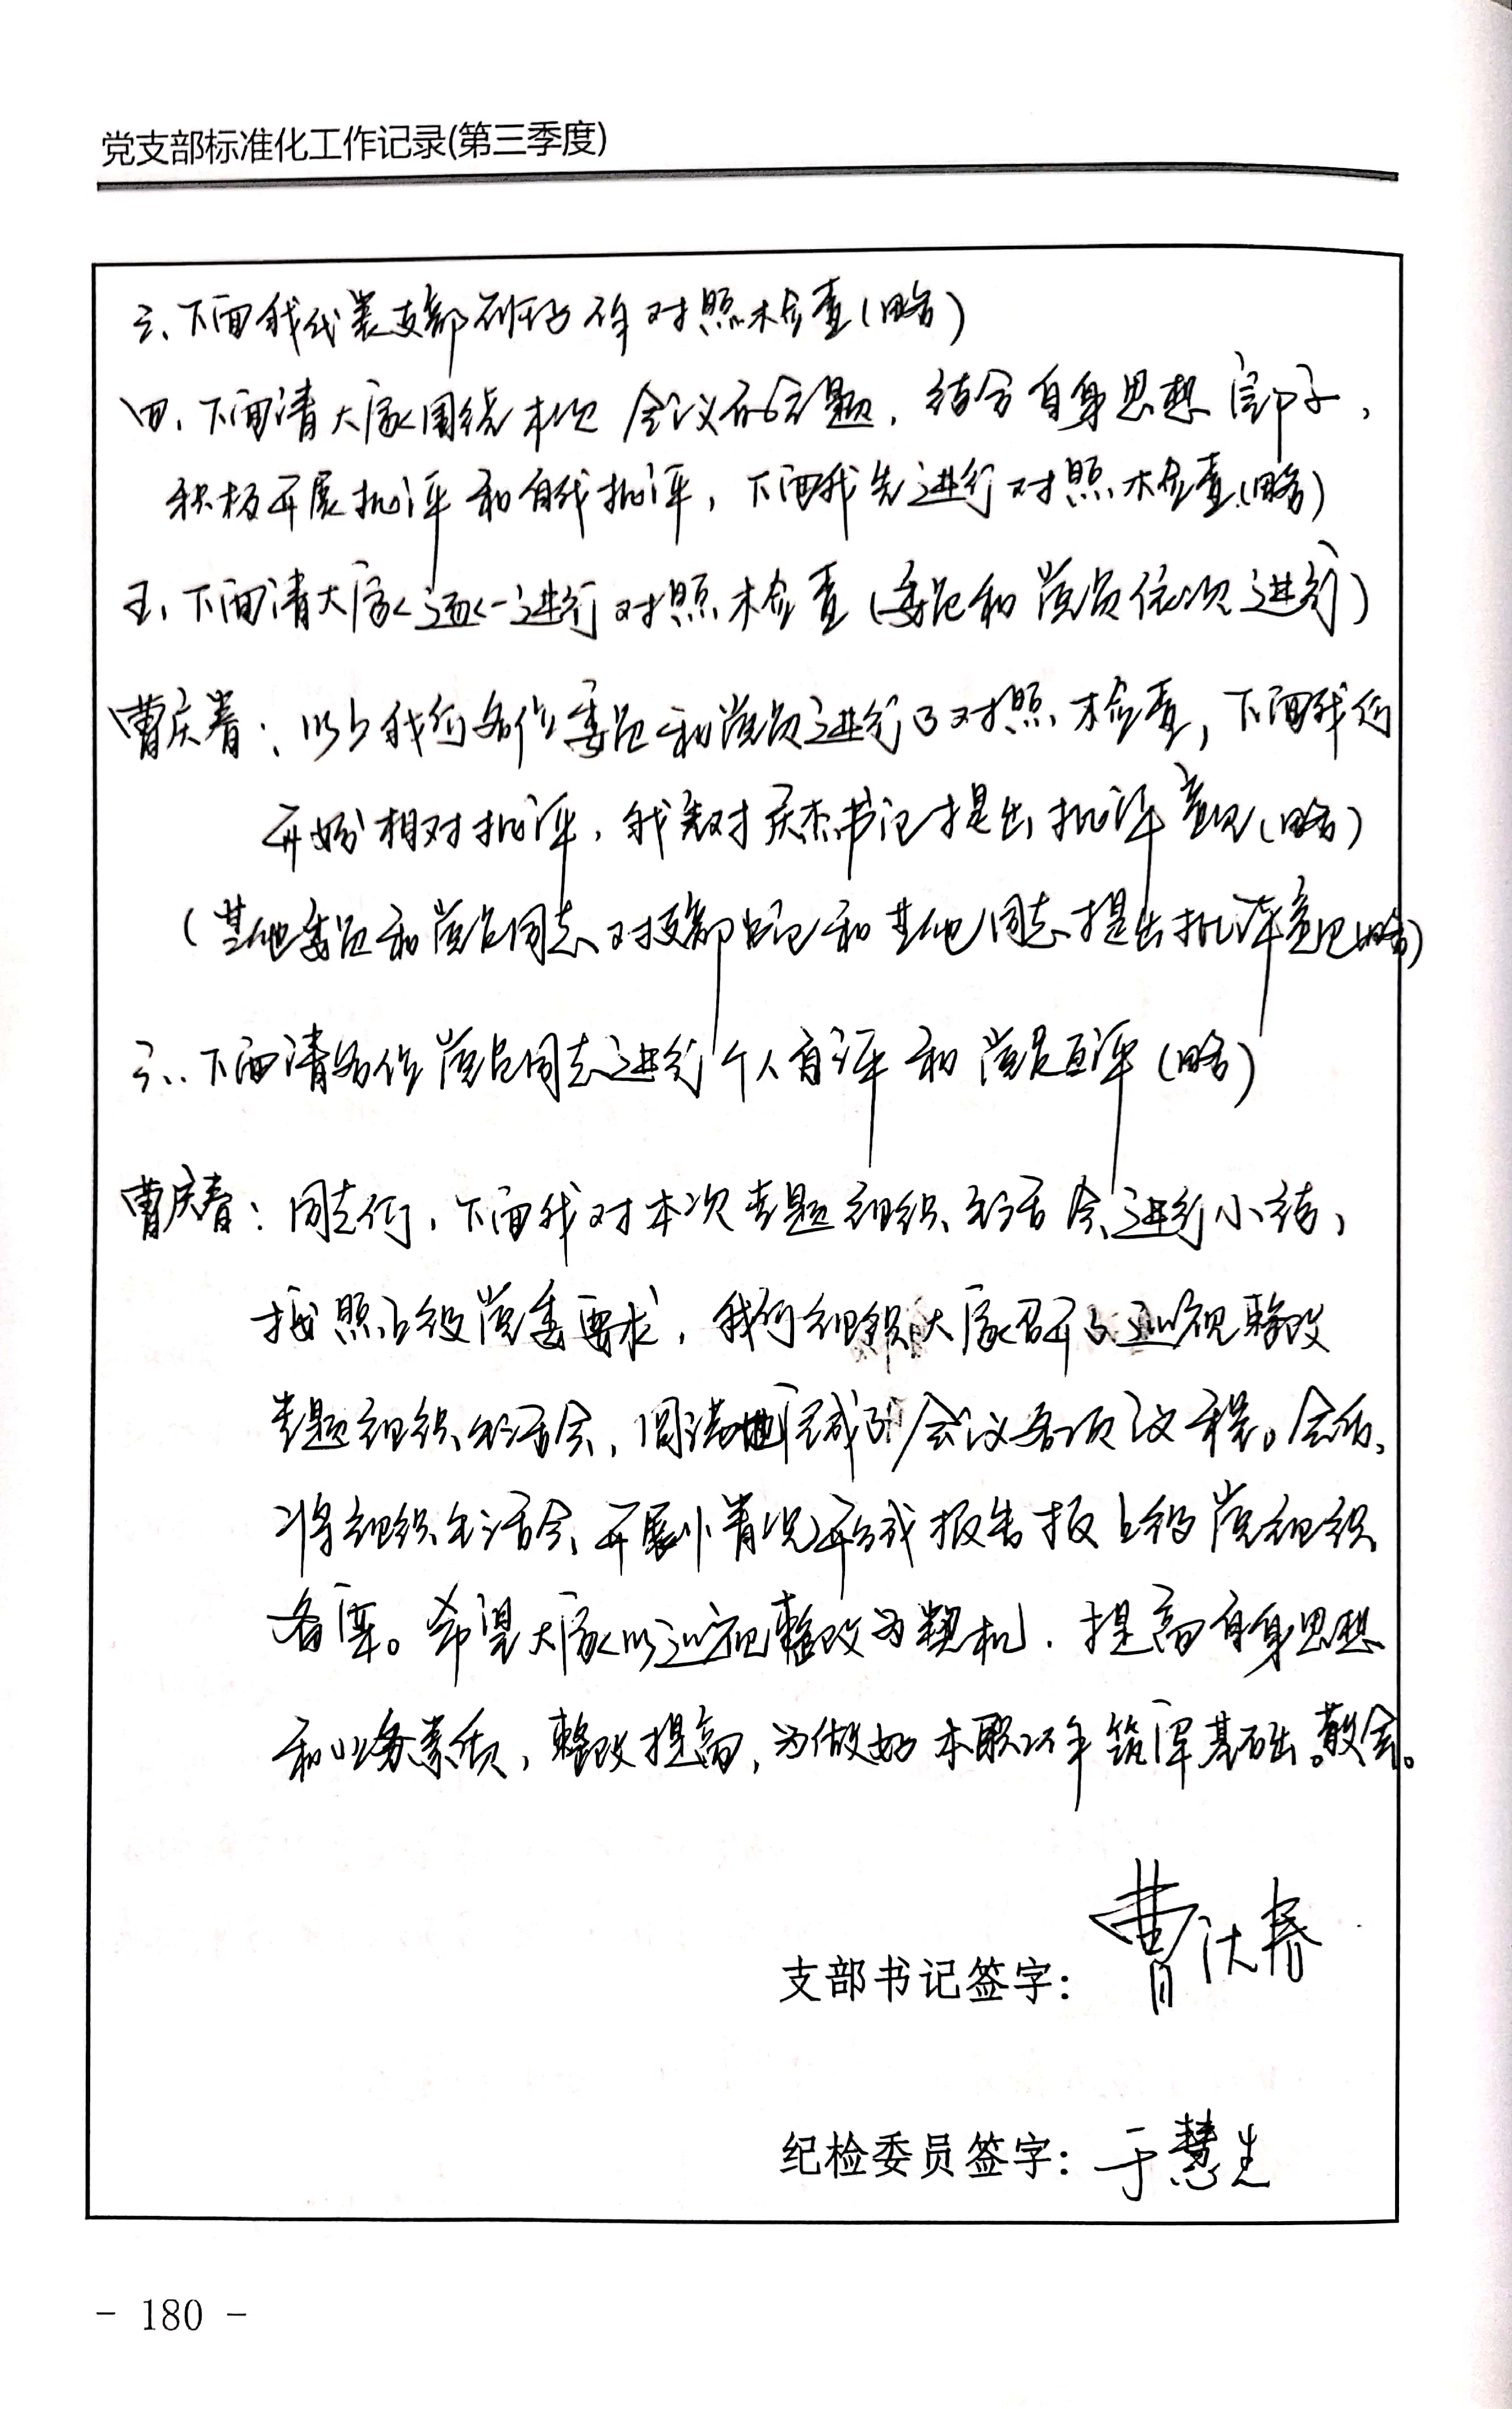 党支部标准化工作记录(第三季度)
三、下面我代表支部班子作对照检查(略)
四、下面请大家围绕本次会议的主题，结合自身思想实际，
积极开展批评和自我批评，下面我先进行对照检查(略)
五、下面请大家逐一进行对照检查(委员和党员依次进行)
曹庆春：以上我们各位委员和党员进行了对照检查，下面我们
开始相对批评，我先对庆杰书记提出批评意见(略)
(其他委员和党员同志对支部书记和其他同志提出批评意见略)
六、下面请各位党员同志进行个人自评和党员互评(略)
曹庆春：同志们，下面我对本次专题组织生活会进行小结，
按照上级党委要求，我们组织大家召开了巡视整改
专题组织生活会，圆满地完成了会议各项议程。会后，
将组织生活会开展的情况形成报告报上级党组织
备案。希望大家以巡视整改为契机，提高自身思想
和业务素质，整改提高，为做好本职工作筑牢基础。散会。
支部书记签字：曹庆春
纪检委员签字：于慧生
- 180 -